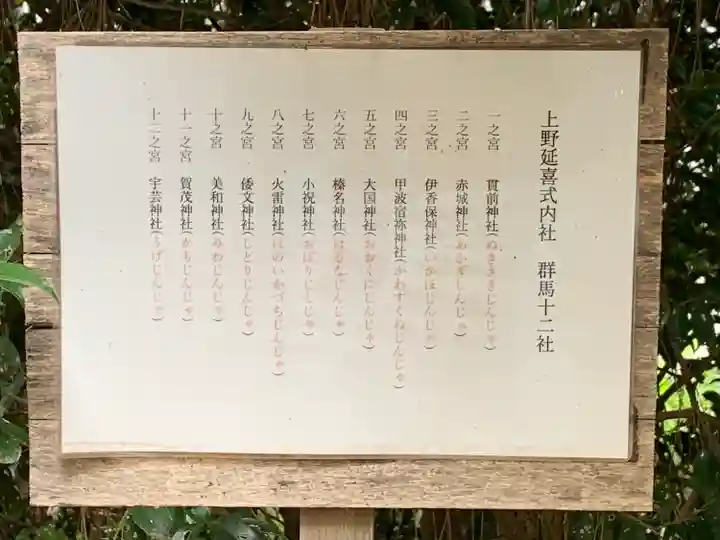 上野延喜式内社 群馬十二社
一之宮 貫前神社(ぬきさきじんじゃ)
二之宮 赤城神社(あかぎじんじゃ)
三之宮 伊香保神社(いかほじんじゃ)
四之宮 甲波宿祢神社(かわすくねじんじゃ)
五之宮 大国神社(おおくにじんじゃ)
六之宮 榛名神社(はるなじんじゃ)
七之宮 小祝神社(おぼりじんじゃ)
八之宮 火雷神社(ほのいかづちじんじゃ)
九之宮 倭文神社(しどりじんじゃ)
十之宮 美和神社(みわじんじゃ)
十一之宮 賀茂神社(かもじんじゃ)
十二之宮 宇芸神社(うげじんじゃ)